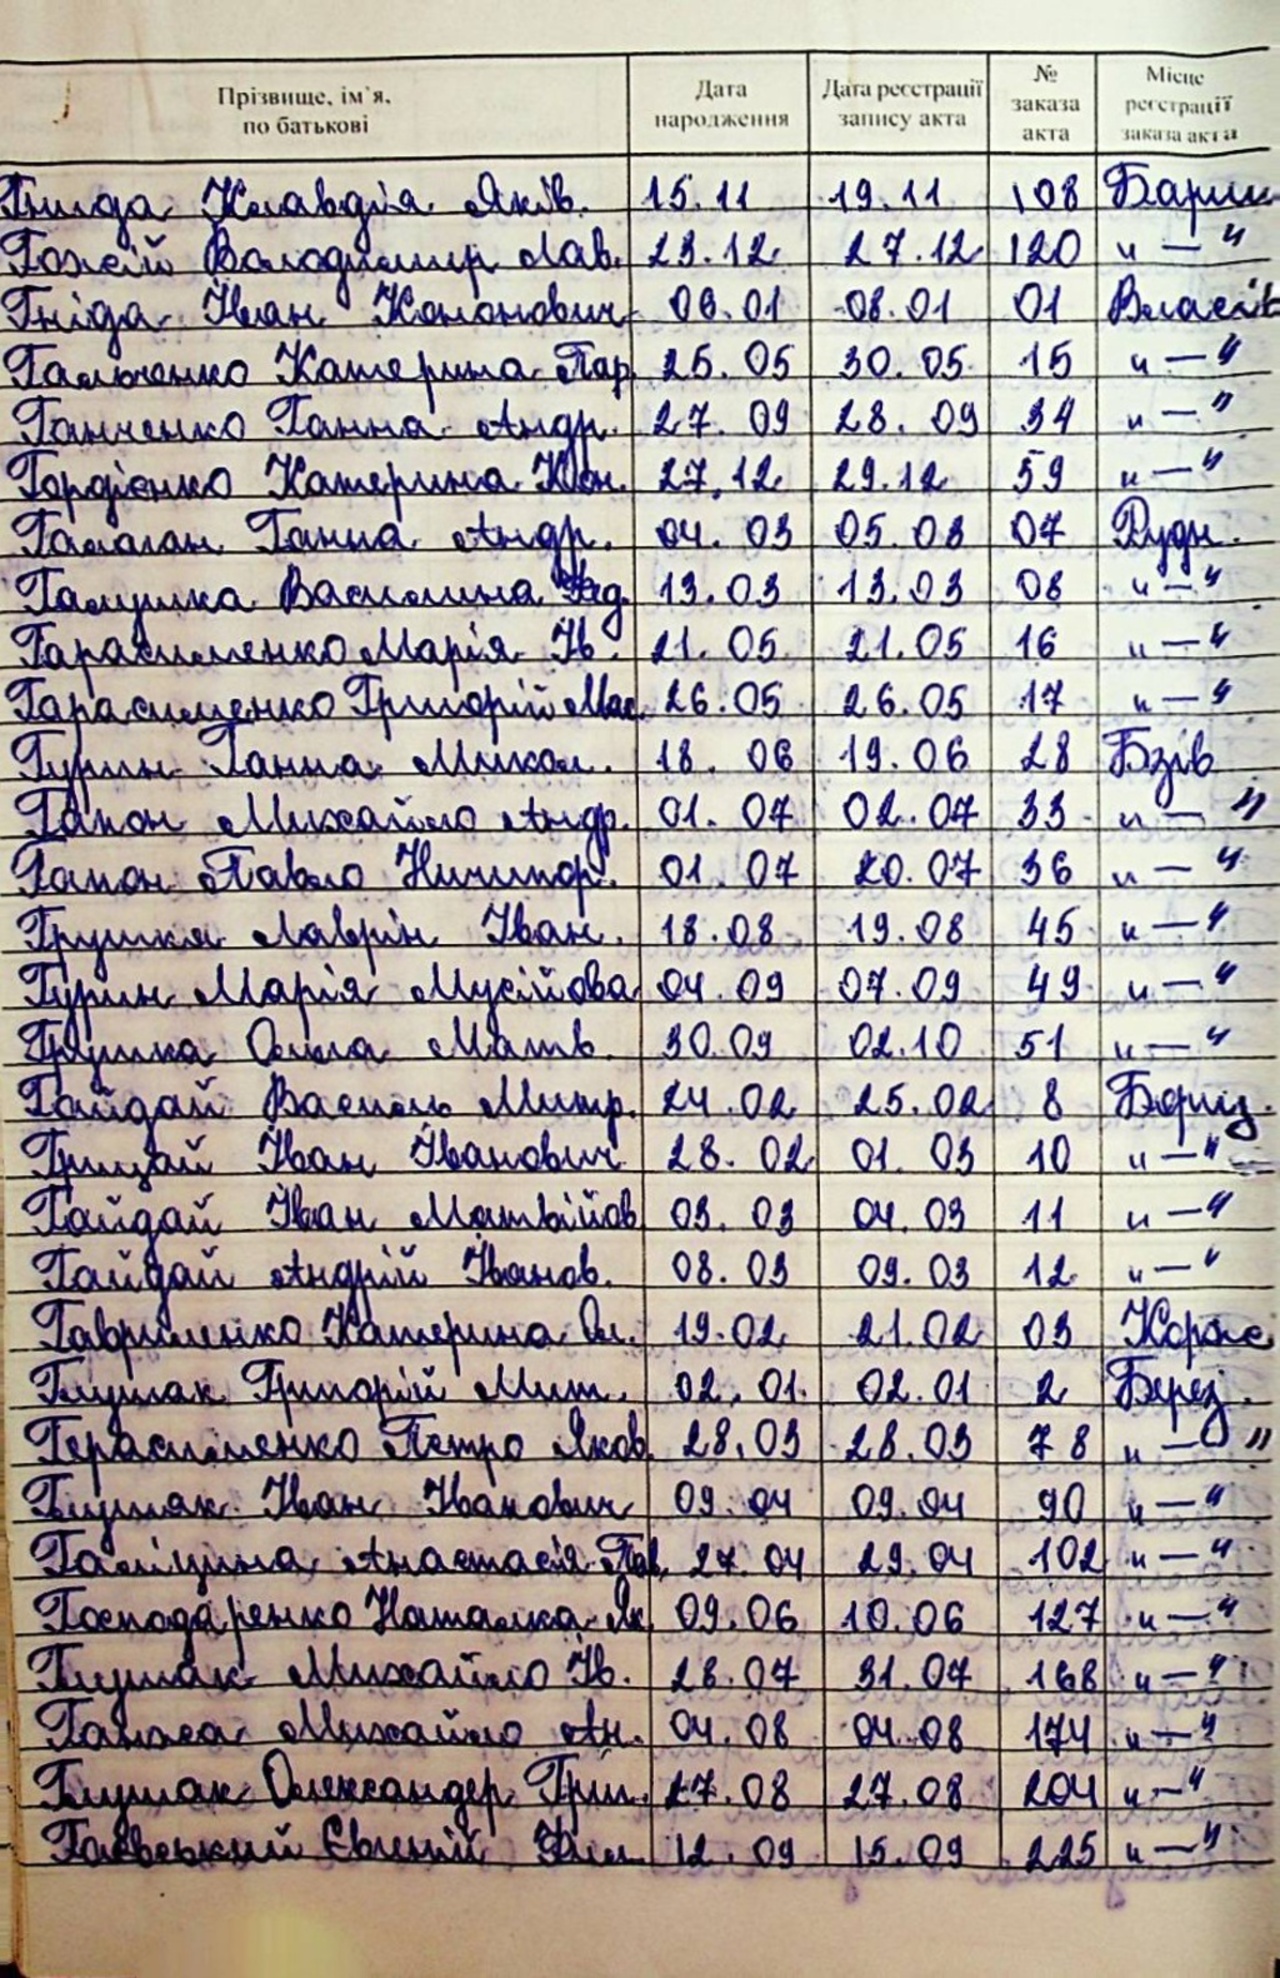 Прізвище, ім`я, по батькові Дата народження Дата реєстрації запису акта № заказа акта Місце реєстрації заказа акта
Гнида Клавдія Яків. 15.11 19.11 108 Бариш
Гожій Володимир Лав. 23.12 27.12 120 "—"
Гніда Іван Кононович 06.01 08.01 01 Власів
Гальченко Катерина Пар. 25.05 30.05 15 "—"
Ганченко Ганна Андр. 27.09 28.09 34 "—"
Гордієнко Катерина Кон. 27.12 29.12 59 "—"
Галаган Ганна Андр. 04.03 05.03 07 Рудн.
Галушка Василина Фед. 13.03 13.03 08 "—"
Гарасименко Марія Ів. 21.05 21.05 16 "—"
Гарасименко Григорій Мак. 26.05 26.05 17 "—"
Гурин Ганна Микол. 18.06 19.06 28 Бзів
Гапон Михайло Андр. 01.07 02.07 33 "—"
Гапон Павло Ничипор. 01.07 20.07 36 "—"
Грушка Лаврін Іван. 18.08 19.08 45 "—"
Гурин Марія Мусійова 04.09 07.09 49 "—"
Грушка Ольга Матв. 30.09 02.10 51 "—"
Гайдай Василь Митр. 24.02 25.02 8 Бориз.
Грицай Іван Іванович 28.02 01.03 10 "—"
Гайдай Іван Матвійов 03.03 04.03 11 "—"
Гайдай Андрій Іванов. 08.03 09.03 12 "—"
Гавриленко Катерина Ол. 19.02 21.02 03 Корже
Глушак Григорій Мит. 02.01 02.01 2 Берез.
Герасименко Петро Яков. 28.03 28.03 78 "—"
Глушак Іван Іванович 09.04 09.04 90 "—"
Галіцина Анастасія Пав. 27.04 29.04 102 "—"
Господаренко Наталка Як. 09.06 10.06 127 "—"
Глушак Михайло Ів. 28.07 31.07 168 "—"
Ганжа Михайло Ан. 04.08 04.08 174 "—"
Глушак Олександер Григ. 27.08 27.08 204 "—"
Гаєвський Євгеній Фил. 12.09 15.09 225 "—"